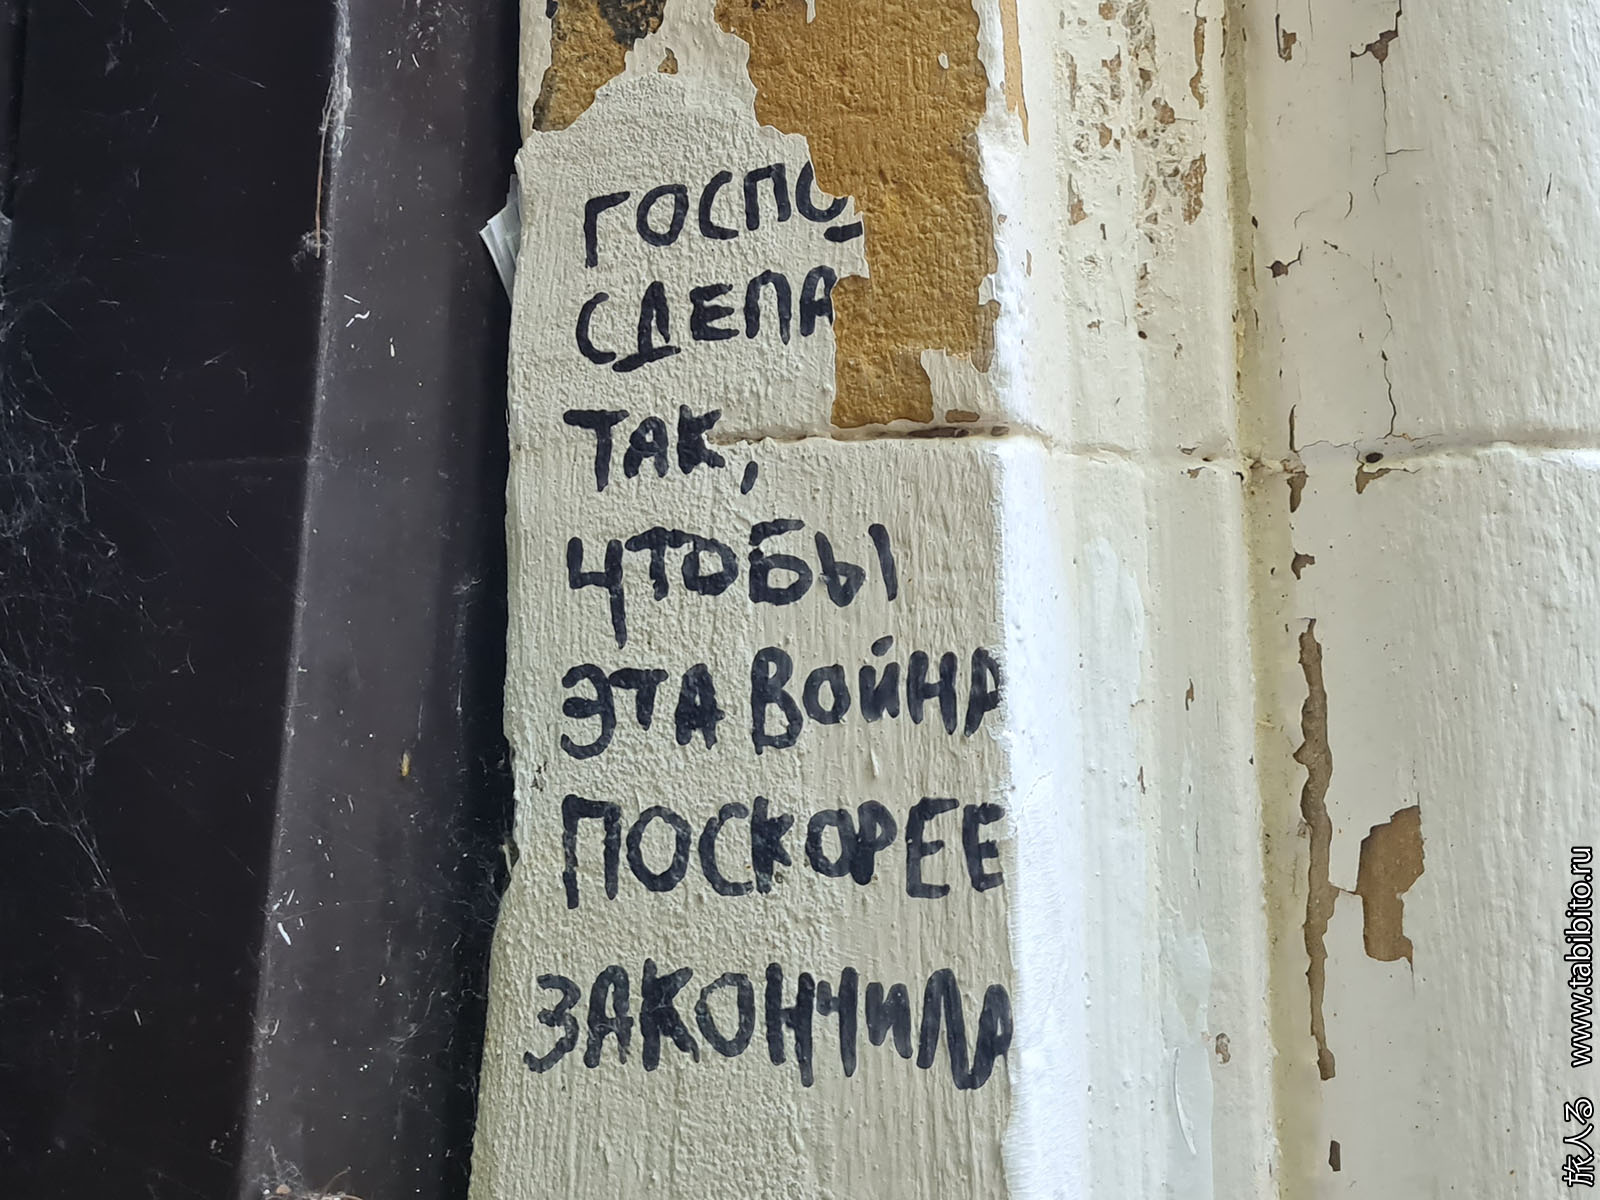 ГОСПО
СДЕЛА
ТАК,
ЧТОБЫ
ЭТА ВОЙНА
ПОСКОРЕЕ
ЗАКОНЧИЛА
旅人る www.tabibito.ru